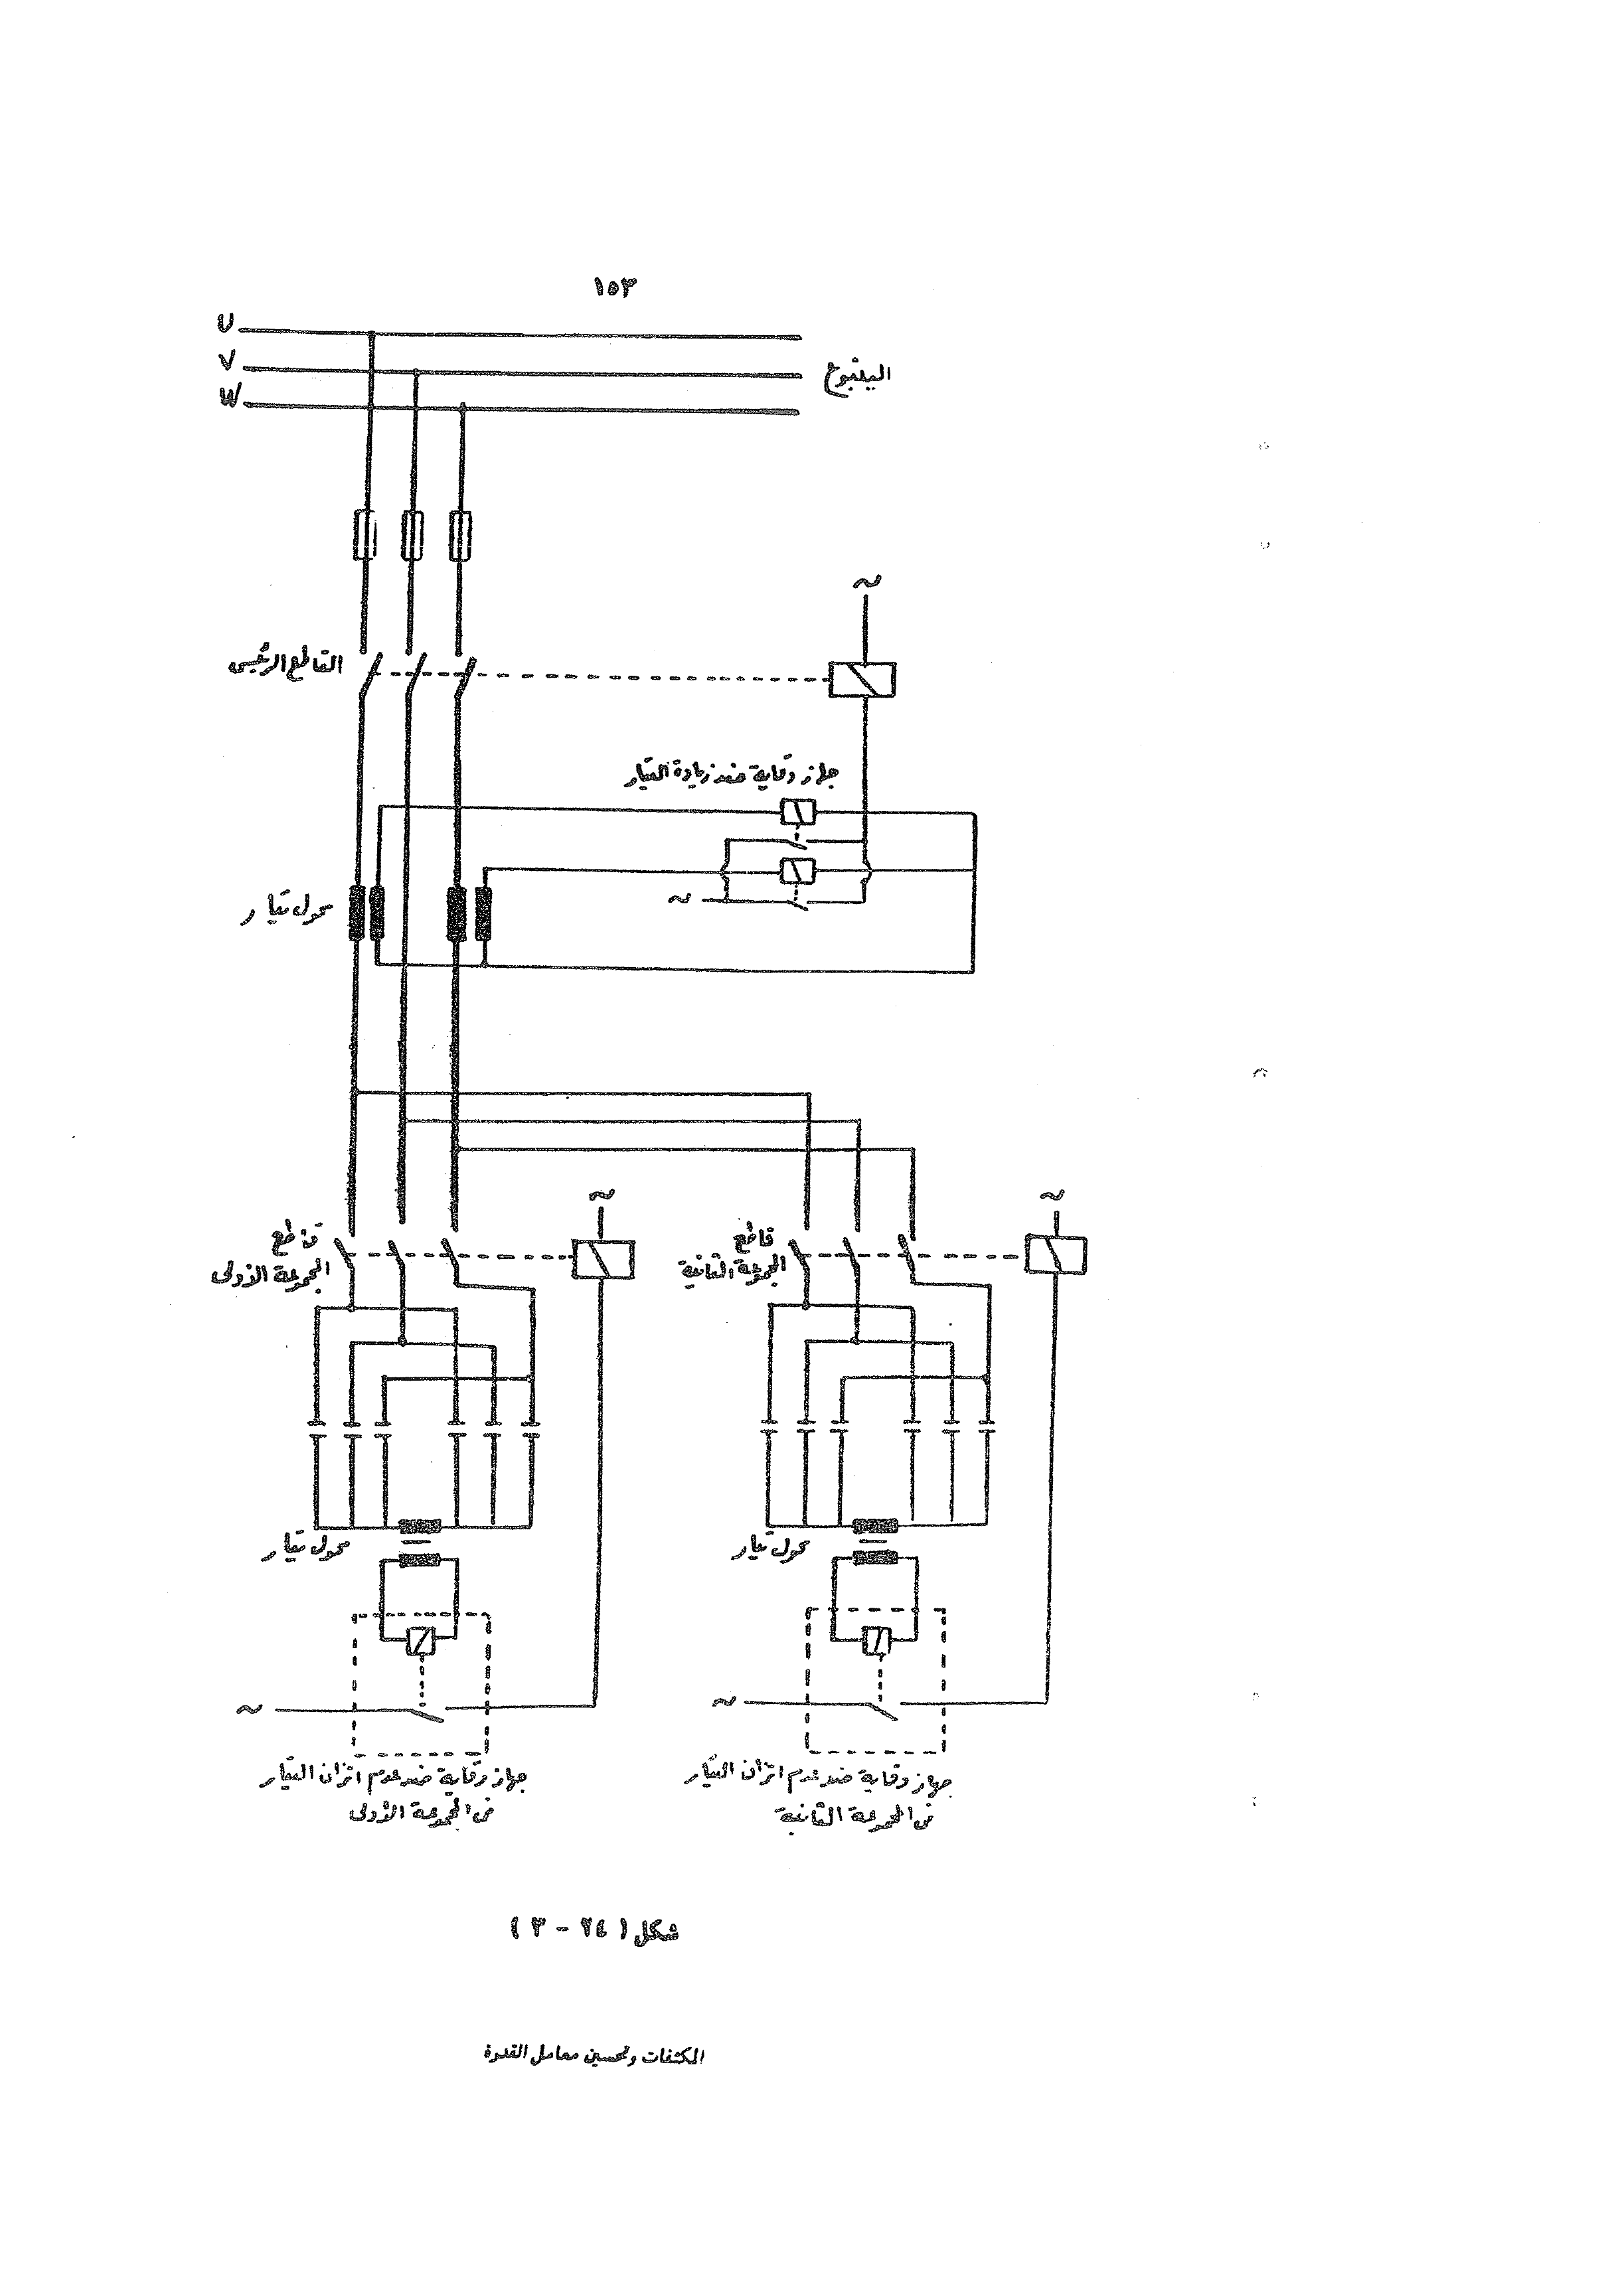 ١٥٣
U
V
W
الينبوع
~
القاطع الرئيسى
جهاز وقاية ضد زيادة التيار
~
محول تيار
~
~
قاطع
المجموعة الأولى
قاطع
المجموعة الثانية
محول تيار
محول تيار
~
~
جهاز وقاية ضد عدم اتزان التيار
فى المجموعة الأولى
جهاز وقاية ضد عدم اتزان التيار
فى المجموعة الثانية
شكل ( ٢٤ - ٣ )
المكثفات وتحسين معامل القدرة